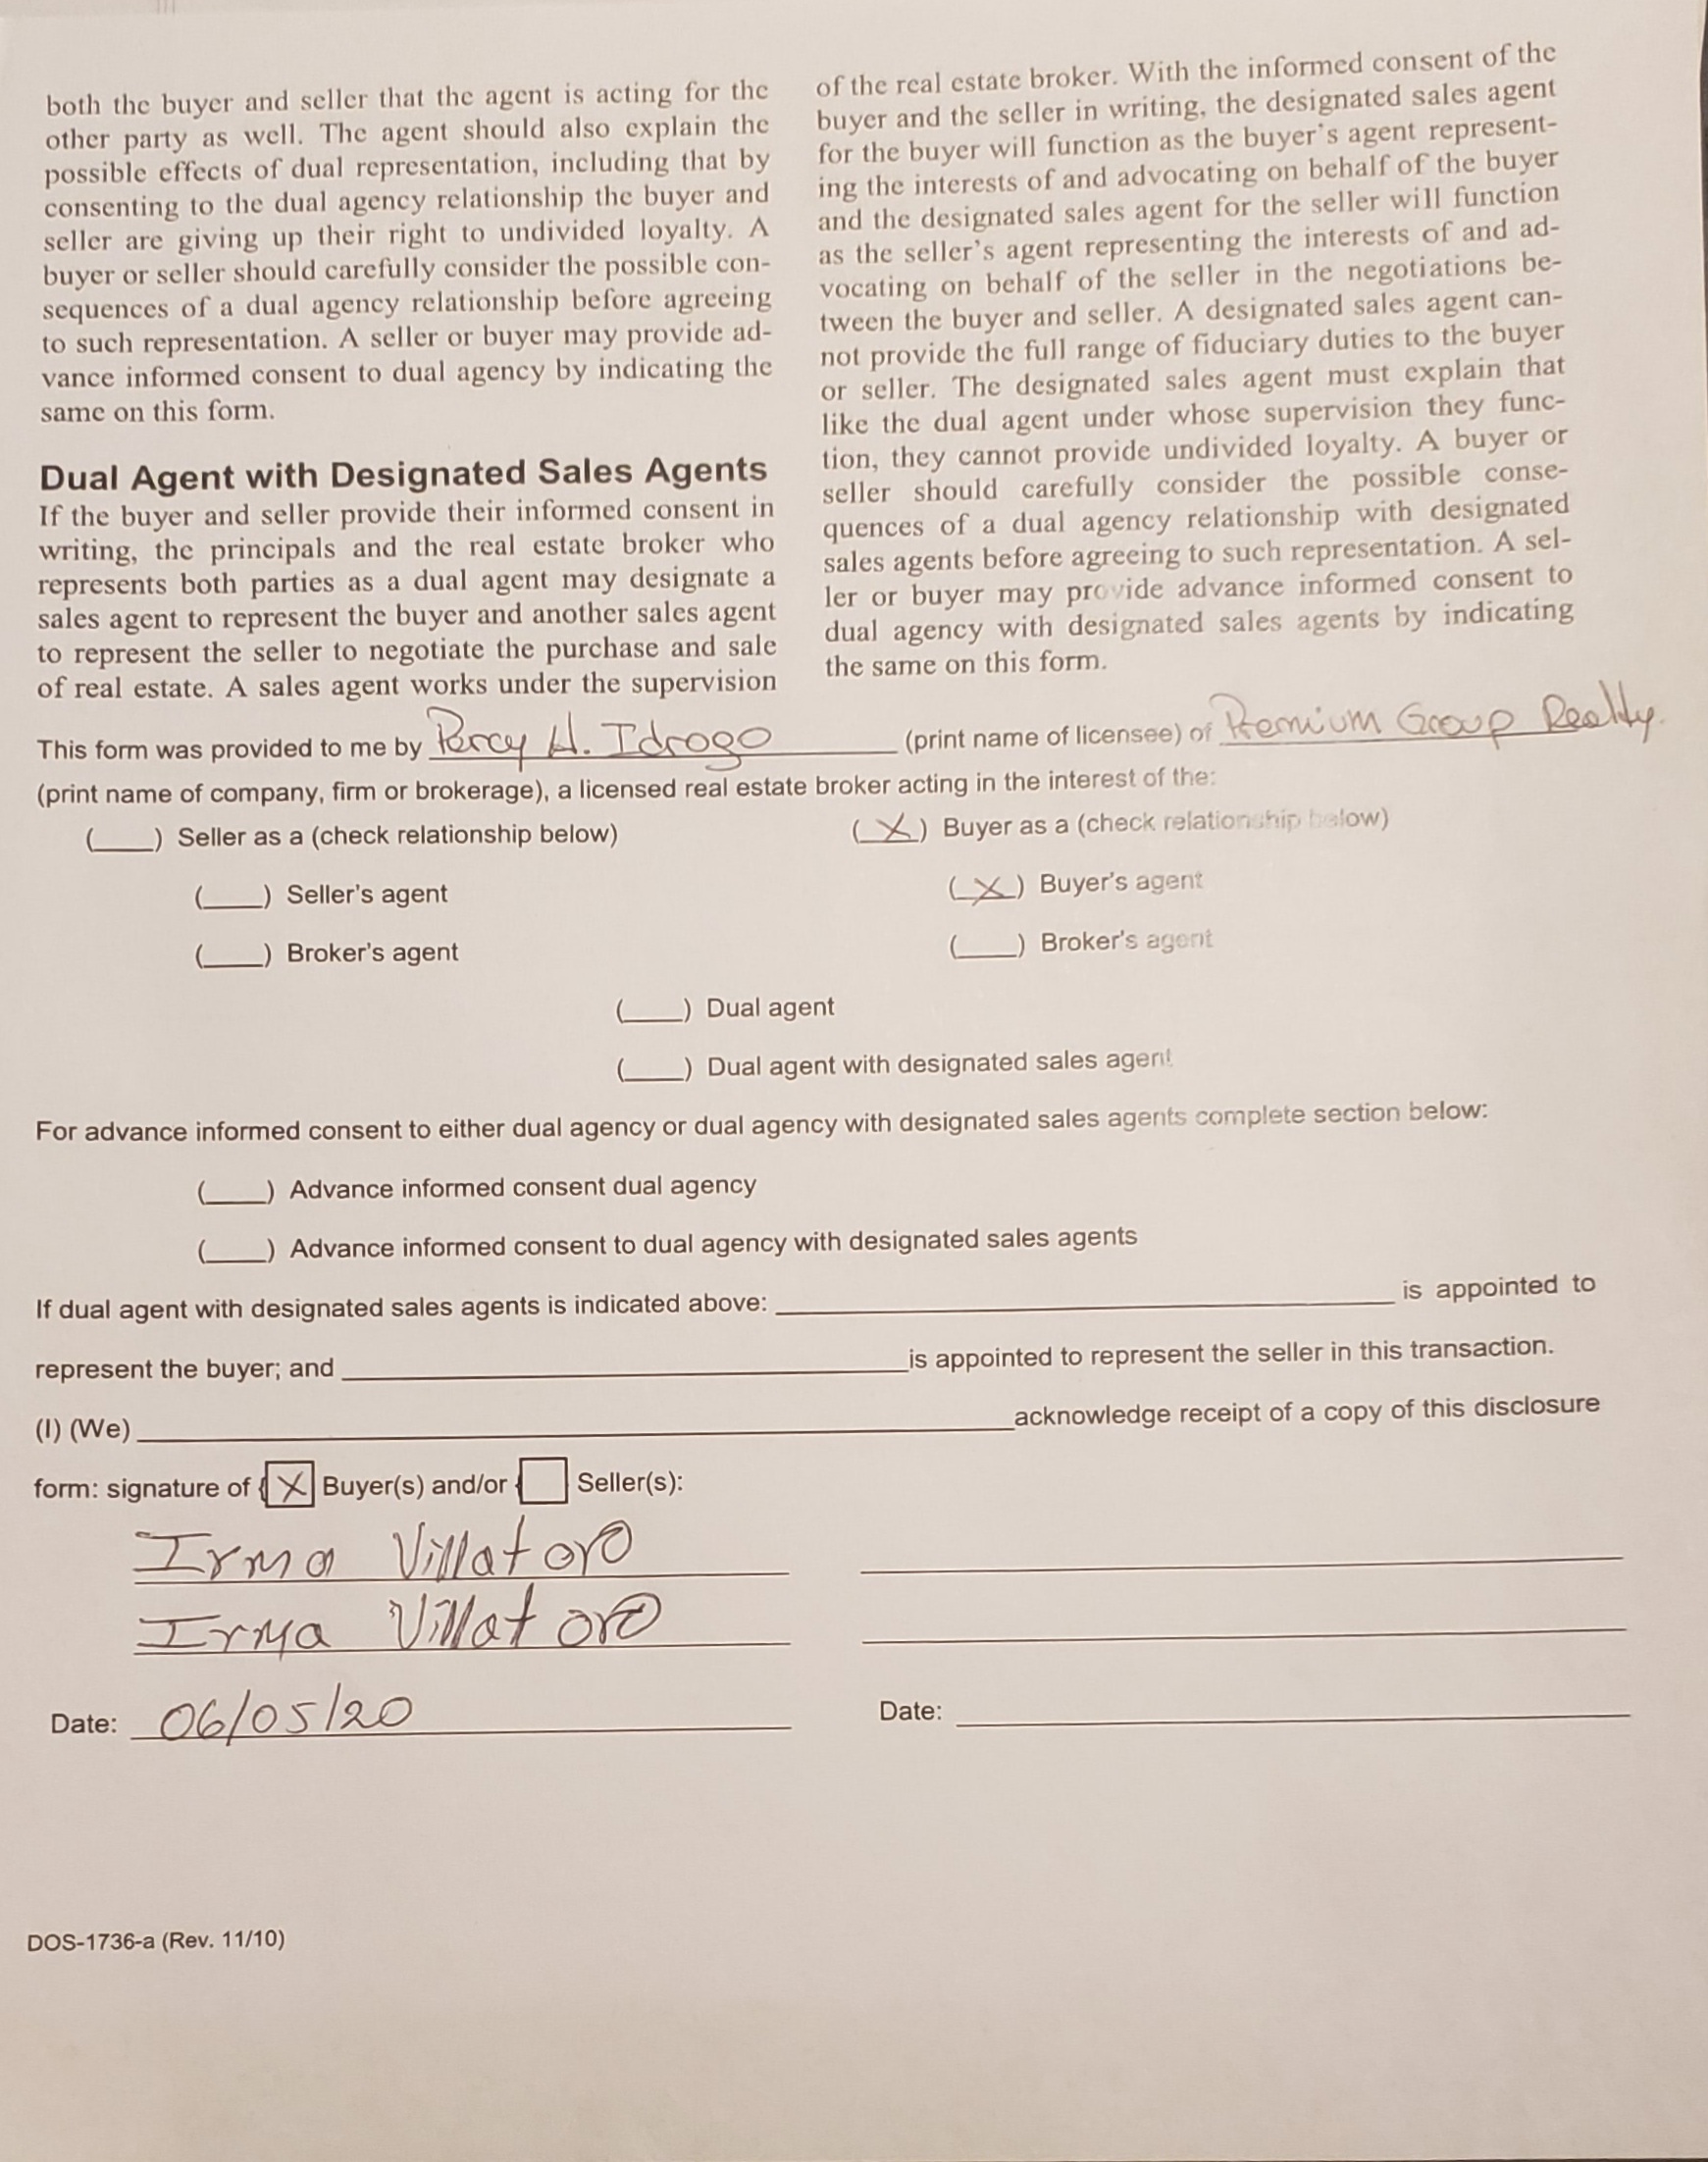 both the buyer and seller that the agent is acting for the
other party as well. The agent should also explain the
possible effects of dual representation, including that by
consenting to the dual agency relationship the buyer and
seller are giving up their right to undivided loyalty. A
buyer or seller should carefully consider the possible con-
sequences of a dual agency relationship before agreeing
to such representation. A seller or buyer may provide ad-
vance informed consent to dual agency by indicating the
same on this form.
Dual Agent with Designated Sales Agents
If the buyer and seller provide their informed consent in
writing, the principals and the real estate broker who
represents both parties as a dual agent may designate a
sales agent to represent the buyer and another sales agent
to represent the seller to negotiate the purchase and sale
of real estate. A sales agent works under the supervision
of the real estate broker. With the informed consent of the
buyer and the seller in writing, the designated sales agent
for the buyer will function as the buyer's agent represent-
ing the interests of and advocating on behalf of the buyer
and the designated sales agent for the seller will function
as the seller's agent representing the interests of and ad-
vocating on behalf of the seller in the negotiations be-
tween the buyer and seller. A designated sales agent can-
not provide the full range of fiduciary duties to the buyer
or seller. The designated sales agent must explain that
like the dual agent under whose supervision they func-
tion, they cannot provide undivided loyalty. A buyer or
seller should carefully consider the possible conse-
quences of a dual agency relationship with designated
sales agents before agreeing to such representation. A sel-
ler or buyer may provide advance informed consent to
dual agency with designated sales agents by indicating
the same on this form.
This form was provided to me by Percy H. Idrogo (print name of licensee) of Premium Group Realty.
(print name of company, firm or brokerage), a licensed real estate broker acting in the interest of the:
(____) Seller as a (check relationship below) (_X_) Buyer as a (check relationship below)
(____) Seller's agent (_X_) Buyer's agent
(____) Broker's agent (____) Broker's agent
(____) Dual agent
(____) Dual agent with designated sales agent
For advance informed consent to either dual agency or dual agency with designated sales agents complete section below:
(____) Advance informed consent dual agency
(____) Advance informed consent to dual agency with designated sales agents
If dual agent with designated sales agents is indicated above: ____________ is appointed to
represent the buyer; and ____________ is appointed to represent the seller in this transaction.
(I) (We) ____________ acknowledge receipt of a copy of this disclosure
form: signature of { X Buyer(s) and/or { Seller(s):
Irma Villatoro
Irma Villatoro
Date: 06/05/20 Date:
DOS-1736-a (Rev. 11/10)